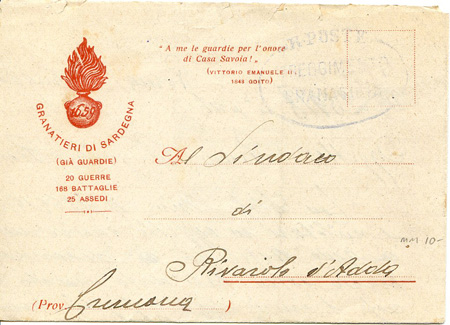 1659
GRANATIERI DI SARDEGNA
(GIÀ GUARDIE)
20 GUERRE
168 BATTAGLIE
25 ASSEDI
"A me le guardie per l'onore
di Casa Savoia!„
(VITTORIO EMANUELE II
1848 GOITO)
Al Sindaco
di
Rivarolo d'Adda
(Prov. Cremona)
MM 10-